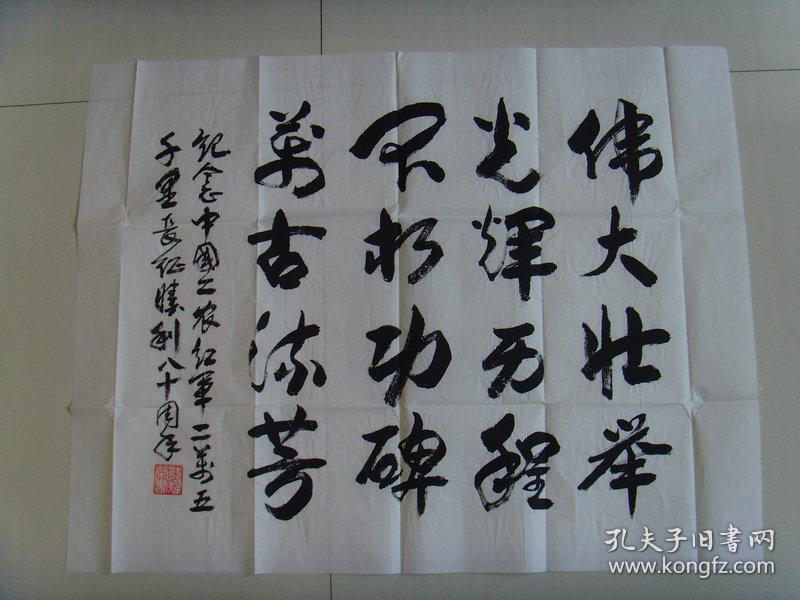 伟大壮举
光辉历程
不朽功碑
萬古流芳
纪念中國工农红軍二萬五
千里長征勝利八十周年
孔夫子旧書网
www.kongfz.com